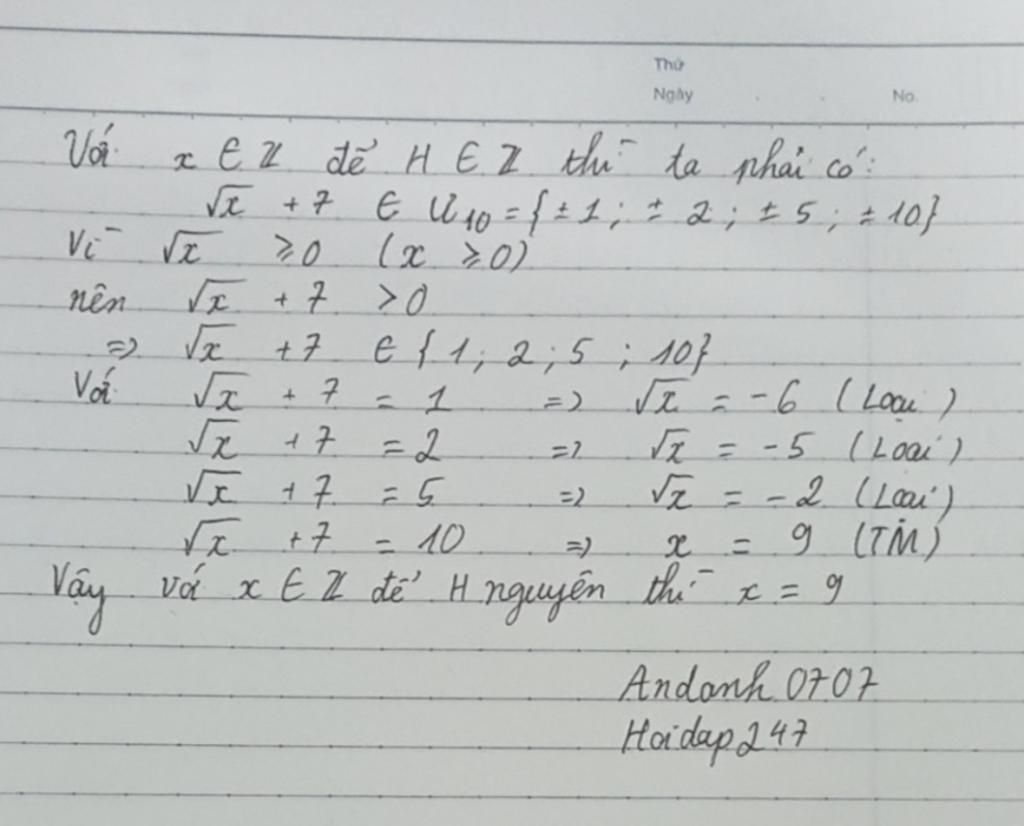 Thứ
Ngày . . No.
Với x ∈ Z để H ∈ Z thì ta phải có:
√x + 7 ∈ Ư₁₀ = {±1; ±2; ±5; ±10}
Vì √x ≥ 0 (x ≥ 0)
nên √x + 7 > 0
=> √x + 7 ∈ {1; 2; 5; 10}
Với √x + 7 = 1 => √x = -6 (Loại)
√x + 7 = 2 => √x = -5 (Loại)
√x + 7 = 5 => √x = -2 (Loại)
√x + 7 = 10 => x = 9 (TM)
Vậy với x ∈ Z để H nguyên thì x = 9
Andanh0707
Hoidap247